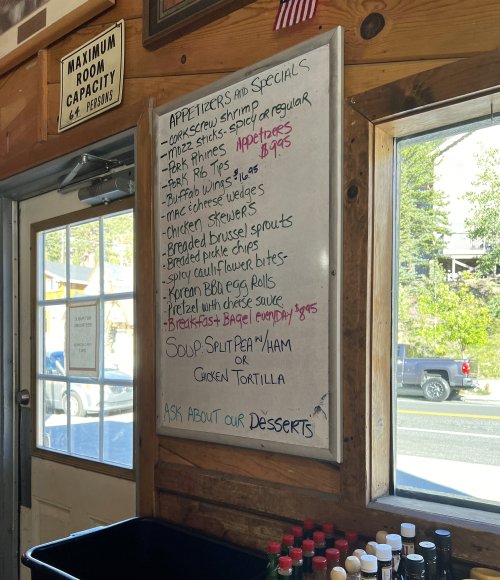 MAXIMUM
ROOM
CAPACITY
64 PERSONS
APPETIZERS AND SPECIALS
- CORKSCREW Shrimp
- MOZZ STICKS - SPICY OR REGULAR
- PORK RHINES Appetizers
- PORK RIB TIPS $9.95
- BUFFALO WINGS $16.95
- MAC & cheese wedges
- Chicken SKEWERS
- Breaded brussel sprouts
- Breaded pickle chips
- spicy cauliflower bites -
- Korean BBQ egg Rolls
- Pretzel with cheese sauce
- BREAKFAST BAGEL everyDAY $8.95
SOUP: SPLIT PEA W/ HAM
OR
CHICKEN TORTILLA
ASK ABOUT OUR Desserts